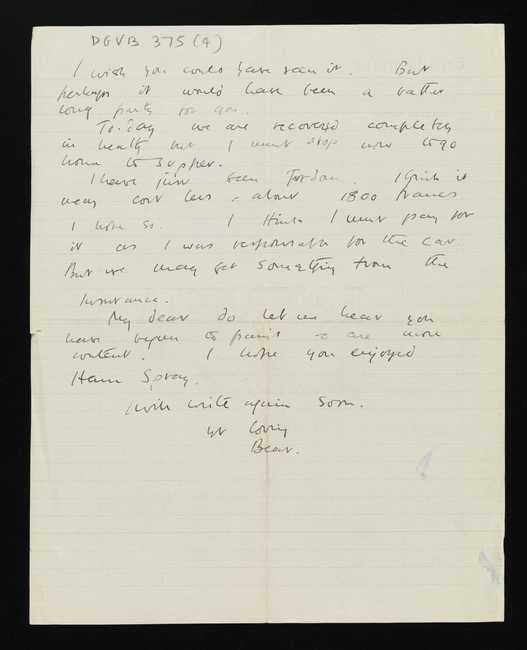 DGVB 375 (4)
I wish you could have seen it. But
perhaps it would have been a rather
long party for you.
To-day we are recovered completely
in health but I must stop now to go
home to supper.
I have just seen Jordan. I think it
may cost less - about 1800 francs
I hope so. I think I must pay for
it as I was responsible for the car.
But we may get something from the
Insurance.
My dear do let me hear you
have begun to paint & are more
content. I hope you enjoyed
Ham Spray.
I will write again soon.
yr loving
Bear.